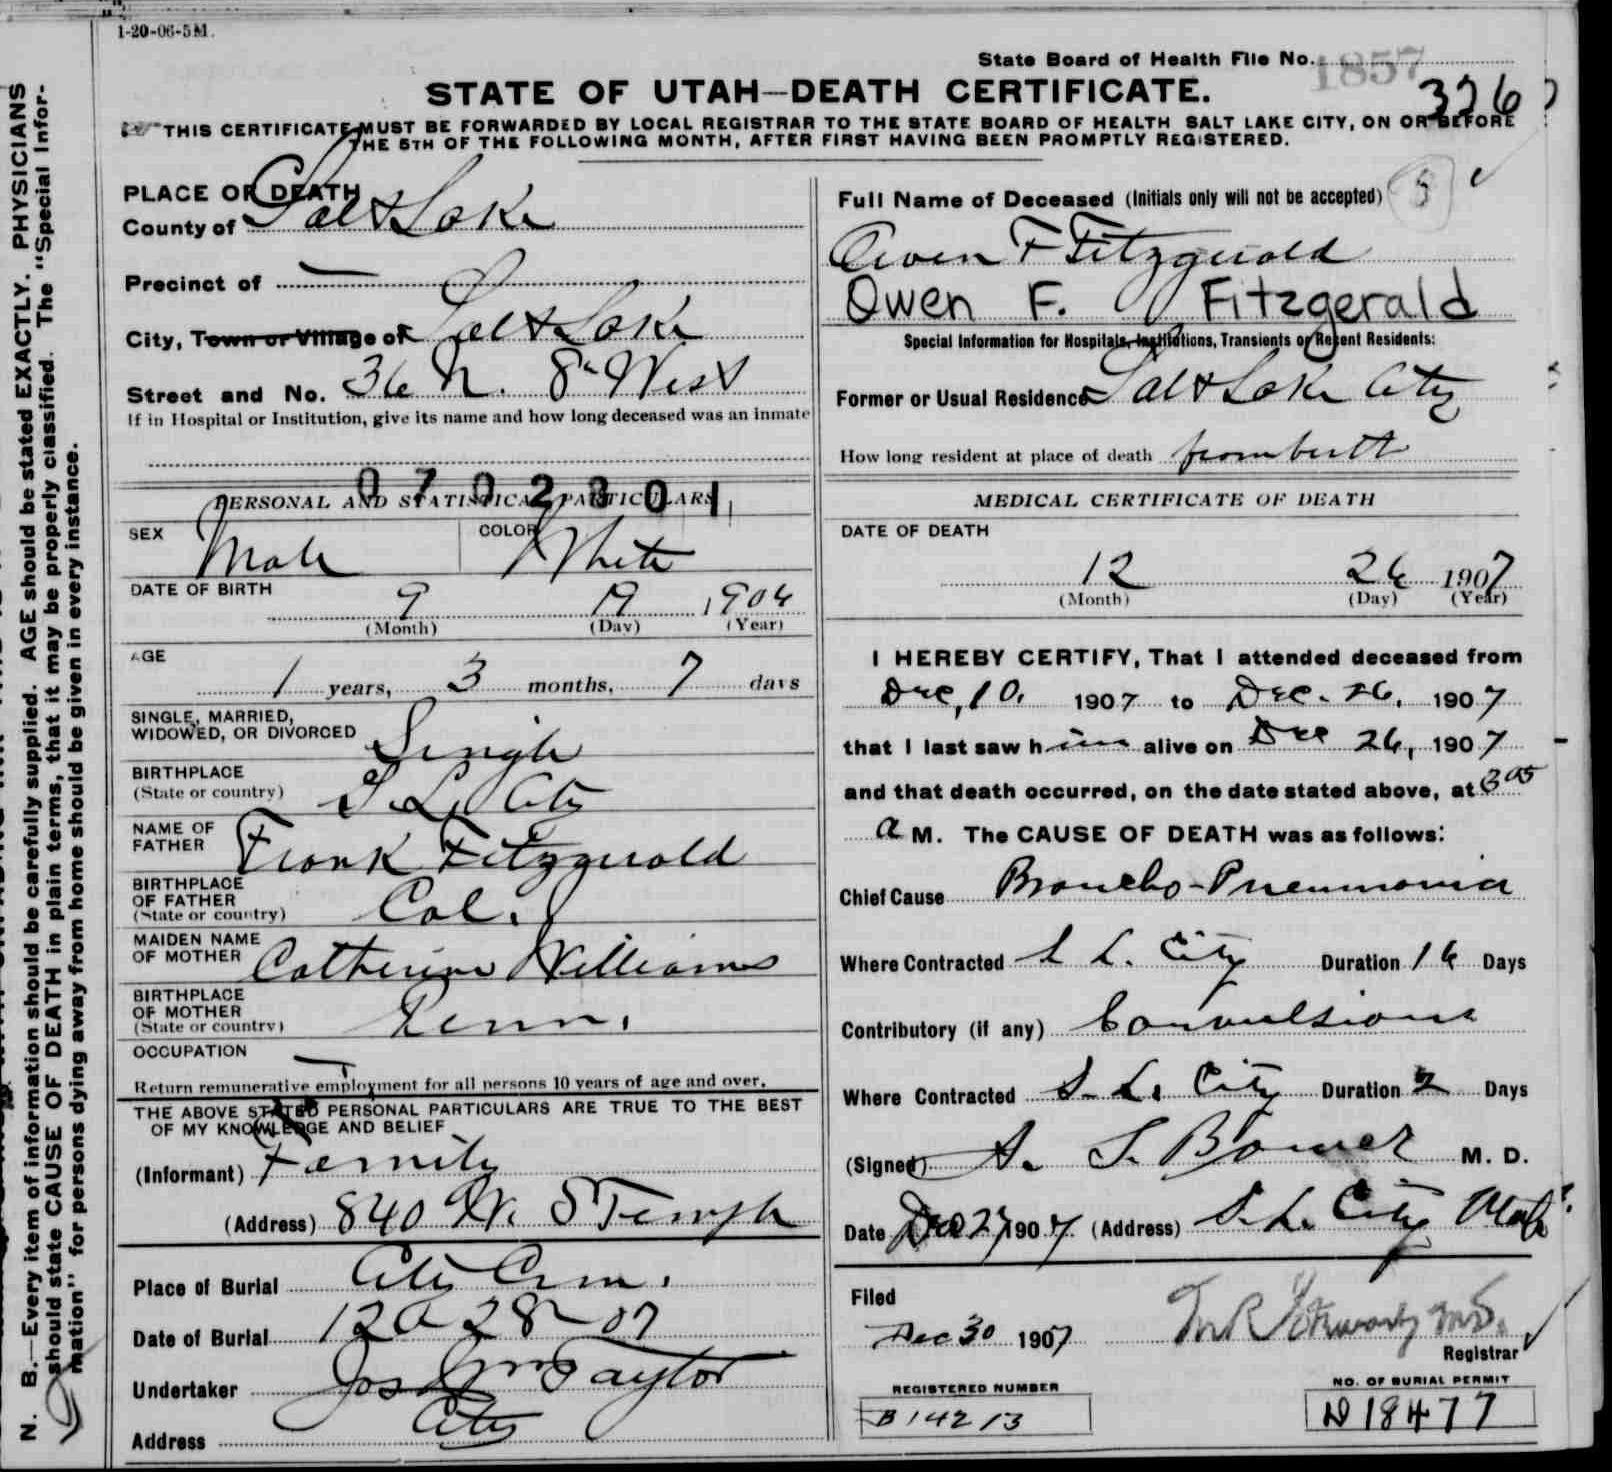 1-20-06-5M.
State Board of Health File No. 1857
326
STATE OF UTAH—DEATH CERTIFICATE.
THIS CERTIFICATE MUST BE FORWARDED BY LOCAL REGISTRAR TO THE STATE BOARD OF HEALTH SALT LAKE CITY, ON OR BEFORE
THE 5TH OF THE FOLLOWING MONTH, AFTER FIRST HAVING BEEN PROMPTLY REGISTERED.
N. B.—Every item of information should be carefully supplied. AGE should be stated EXACTLY. PHYSICIANS
should state CAUSE OF DEATH in plain terms, that it may be properly classified. The "Special Infor-
mation" for persons dying away from home should be given in every instance.
PLACE OF DEATH
County of Salt Lake
Precinct of —
City, Town or Village of Salt Lake
Street and No. 36 N. 8" West
If in Hospital or Institution, give its name and how long deceased was an inmate
0702301
PERSONAL AND STATISTICAL PARTICULARS
SEX Male COLOR White
DATE OF BIRTH 9 19 1906
(Month) (Day) (Year)
AGE 1 years, 3 months, 7 days
SINGLE, MARRIED,
WIDOWED, OR DIVORCED Single
BIRTHPLACE
(State or country) S. L. City
NAME OF
FATHER Frank Fitzgerald
BIRTHPLACE
OF FATHER
(State or country) Col.
MAIDEN NAME
OF MOTHER Catherine Williams
BIRTHPLACE
OF MOTHER
(State or country) Penn.
OCCUPATION —
Return remunerative employment for all persons 10 years of age and over.
THE ABOVE STATED PERSONAL PARTICULARS ARE TRUE TO THE BEST
OF MY KNOWLEDGE AND BELIEF
(Informant) Family
(Address) 840 W. S Temple
Place of Burial City Cem.
Date of Burial 12 28 07
Undertaker Jos Wm Taylor
Address City
Full Name of Deceased (Initials only will not be accepted)
Owen F Fitzgerald
Owen F. Fitzgerald
Special Information for Hospitals, Institutions, Transients or Recent Residents:
Former or Usual Residence Salt Lake City
How long resident at place of death from birth
MEDICAL CERTIFICATE OF DEATH
DATE OF DEATH
12 26 1907
(Month) (Day) (Year)
I HEREBY CERTIFY, That I attended deceased from
Dec, 10, 1907 to Dec. 26, 1907
that I last saw him alive on Dec 26, 1907
and that death occurred, on the date stated above, at 3 05
a M. The CAUSE OF DEATH was as follows:
Chief Cause Broncho-Pneumonia
Where Contracted S L. City Duration 16 Days
Contributory (if any) Convulsions
Where Contracted S. L. City Duration 2 Days
(Signed) S. Bower M. D.
Date Dec 27 1907 (Address) S. L. City Utah
Filed
Dec 30 1907
Registrar
REGISTERED NUMBER
B 14213
NO. OF BURIAL PERMIT
D 18477